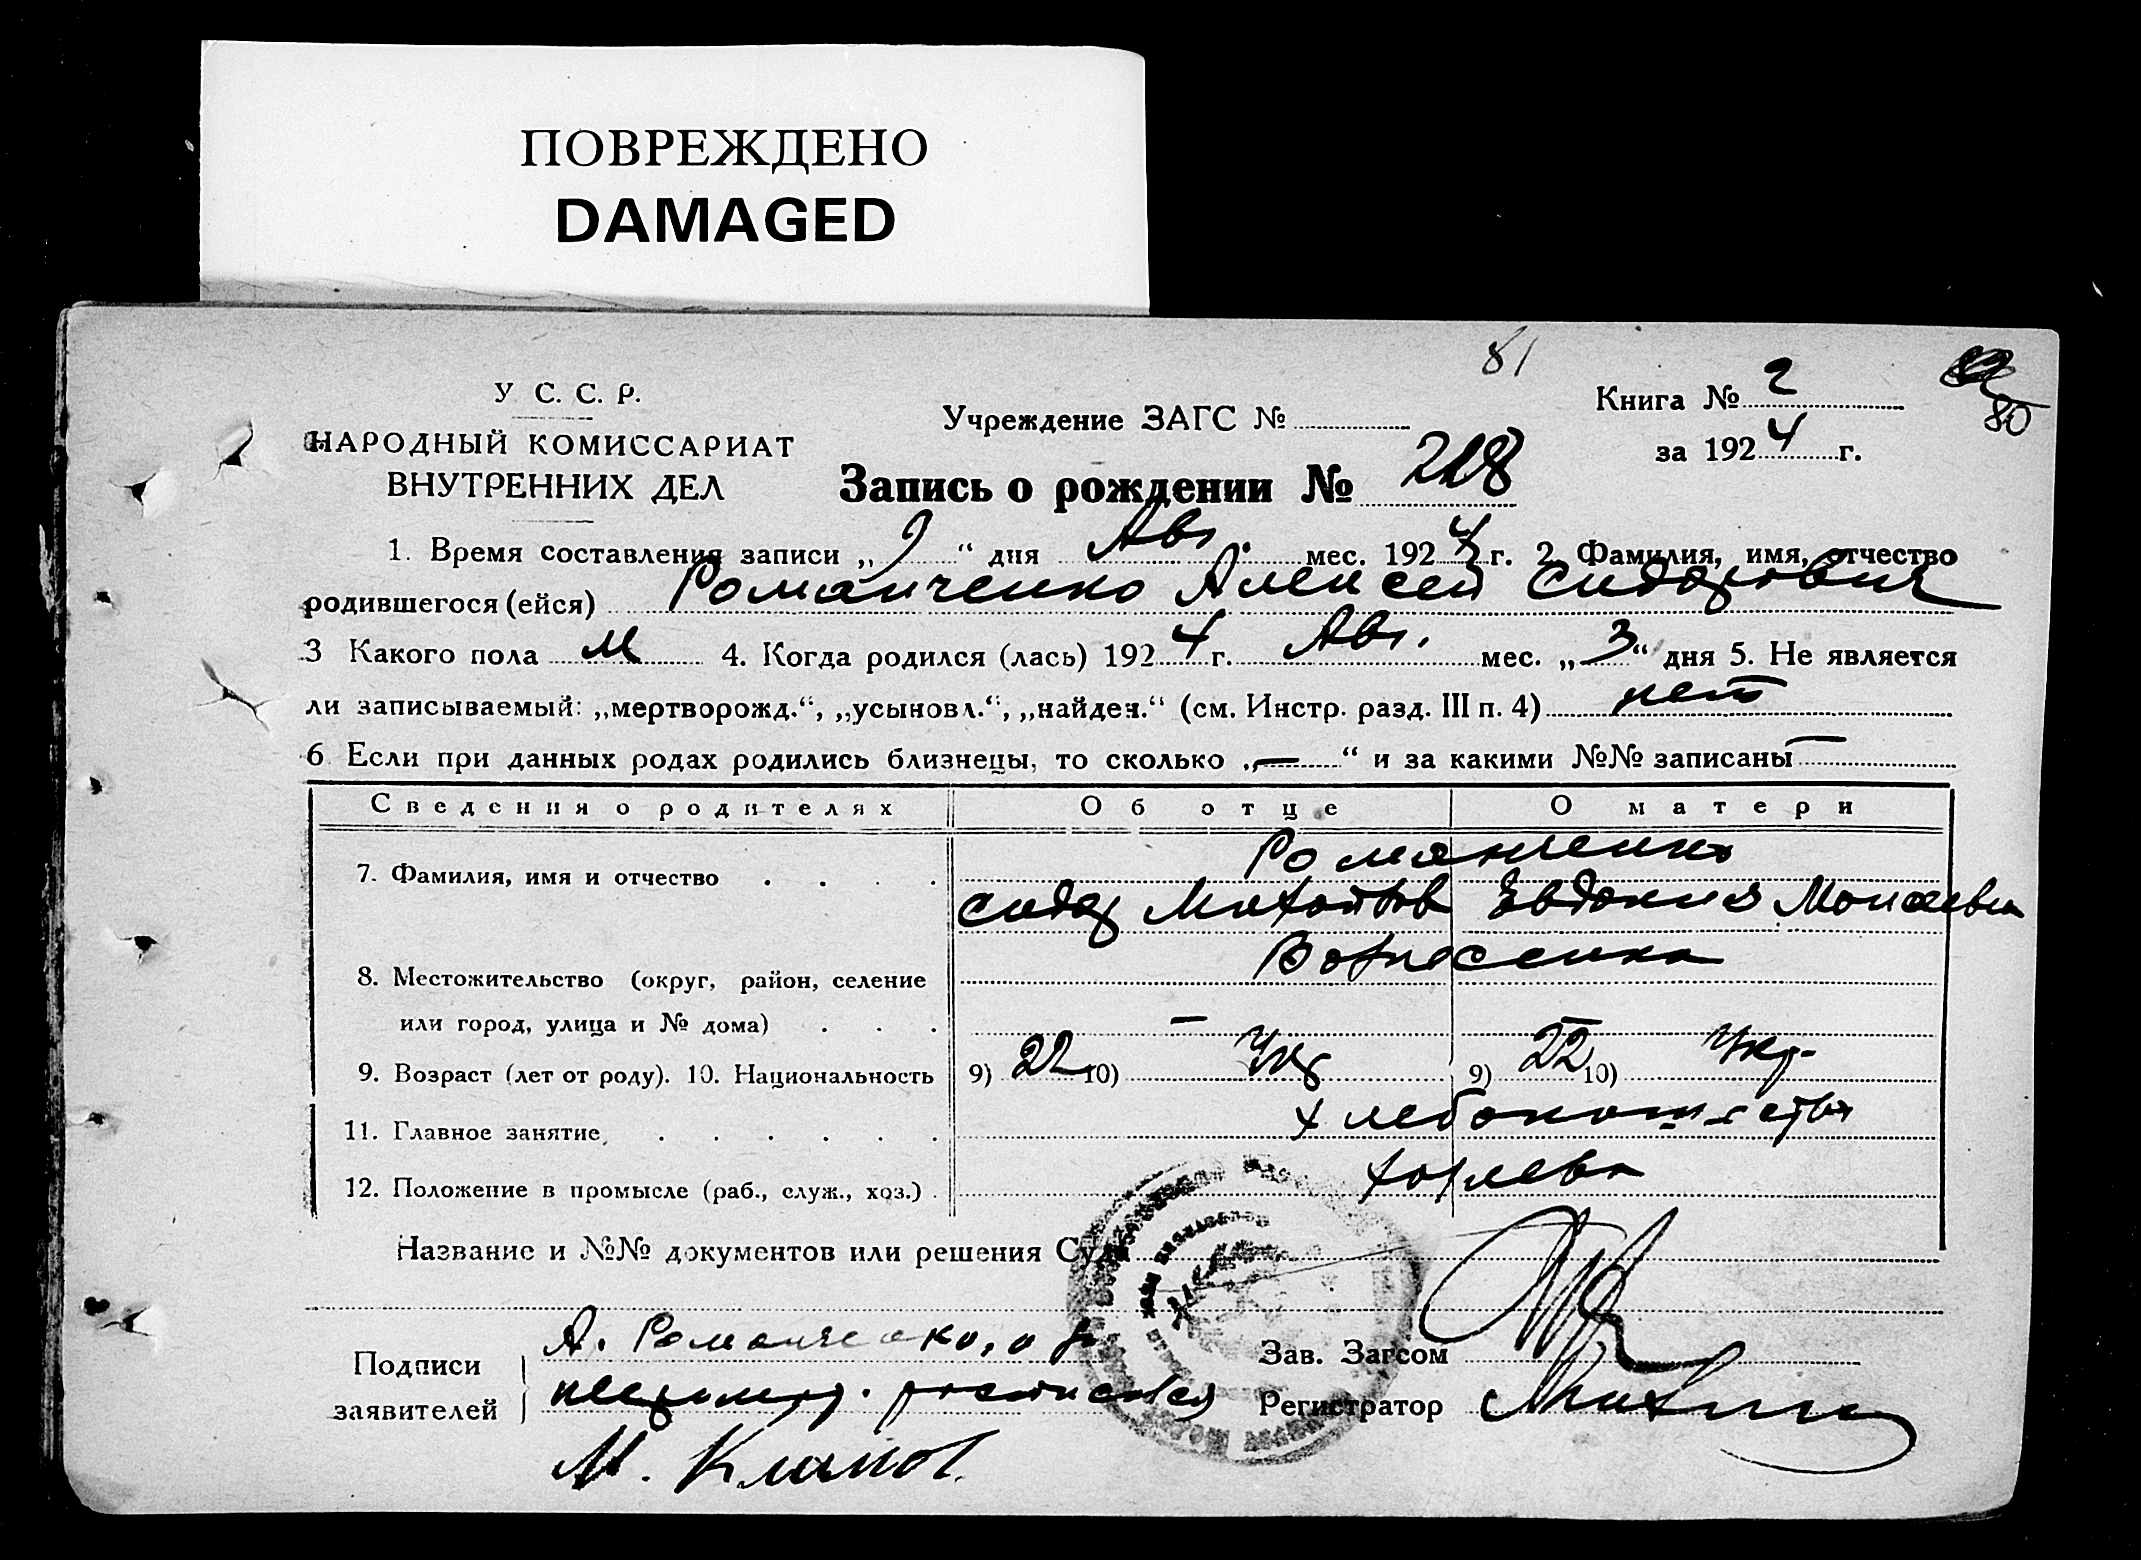 ПОВРЕЖДЕНО
DAMAGED
81
80
У С. С. Р.
НАРОДНЫЙ КОМИССАРИАТ
ВНУТРЕННИХ ДЕЛ
Учреждение ЗАГС №
Книга № 2
за 1924 г.
Запись о рождении № 218
1. Время составления записи „9“ дня Авг. мес. 1924 г. 2. Фамилия, имя, отчество
родившегося (ейся) Романченко Алексей Сидорович
3 Какого пола м 4. Когда родился (лась) 1924 г. Авг. мес. „3“ дня 5. Не является
ли записываемый: „мертворожд.“, „усыновл.“, „найден.“ (см. Инстр. разд. III п. 4) нет
6 Если при данных родах родились близнецы, то сколько „—“ и за какими №№ записаны —
Сведения о родителях Об отце О матери
7. Фамилия, имя и отчество . . . . Романченко
Сидор Евдокия Моисеевна
8. Местожительство (округ, район, селение Вознесенка
или город, улица и № дома) . . . — —
9. Возраст (лет от роду). 10. Национальность 9) 22 10) Укр 9) 22 10) Укр.
11. Главное занятие . . . . . хлебопашество
12. Положение в промысле (раб., служ., хоз.) . хозяева
Название и №№ документов или решения Суда
Подписи заявителей
А. Романченко, а за
неграмот. расписался
М. Климов
Зав. Загсом
Регистратор